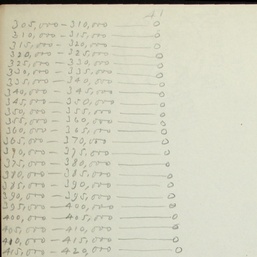 305,000 — 310,000 — 0
310,000 — 315,000 — 0
315,000 — 320,000 — 0
320,000 — 325,000 — 0
325,000 — 330,000 — 0
330,000 — 335,000 — 0
335,000 — 340,000 — 0
340,000 — 345,000 — 0
345,000 — 350,000 — 0
350,000 — 355,000 — 0
355,000 — 360,000 — 0
360,000 — 365,000 — 0
365,000 — 370,000 — 0
370,000 — 375,000 — 0
375,000 — 380,000 — 0
380,000 — 385,000 — 0
385,000 — 390,000 — 0
390,000 — 395,000 — 0
395,000 — 400,000 — 0
400,000 — 405,000 — 0
405,000 — 410,000 — 0
410,000 — 415,000 — 0
415,000 — 420,000 — 0